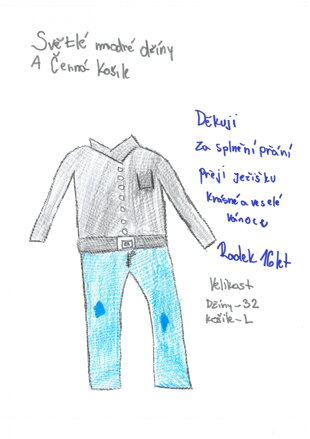 Světlé modré džíny
A Černá Košile
Děkuji
za splnění přání
přeji ježíšku
krásné a veselé
vánoce
Radek 16 let
Velikost
Džíny-32
Košile-L